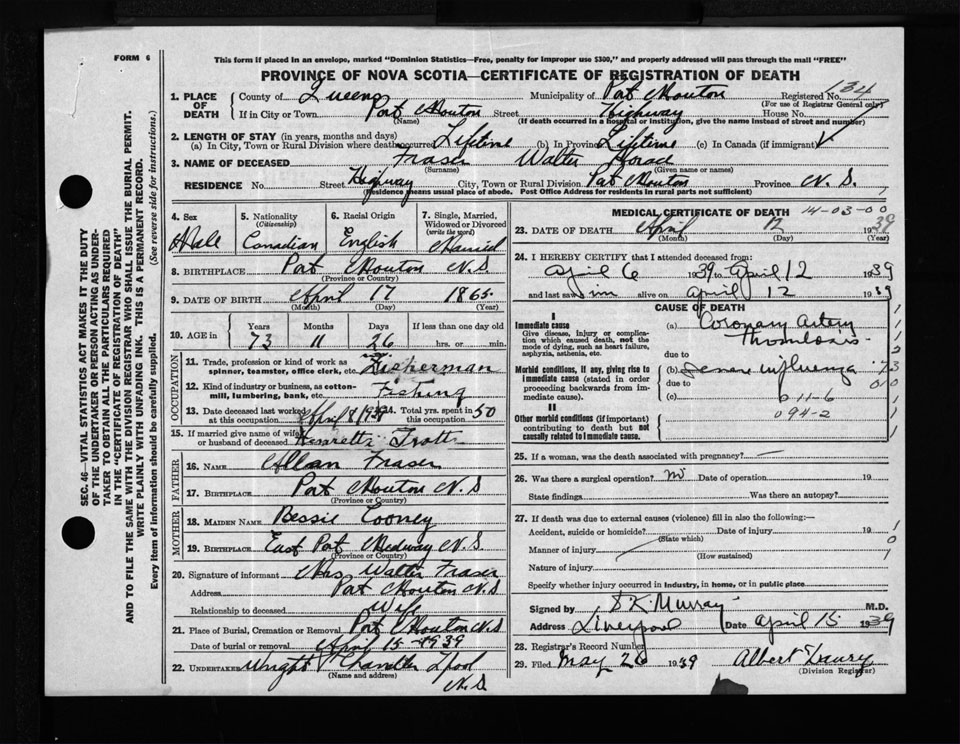 FORM 6
This form if placed in an envelope, marked "Dominion Statistics—Free, penalty for improper use $300," and properly addressed will pass through the mail "FREE"
PROVINCE OF NOVA SCOTIA—CERTIFICATE OF REGISTRATION OF DEATH
1. PLACE OF DEATH County of Queens Municipality of Port Mouton Registered No. 34
(For use of Registrar General only)
If in City or Town Port Mouton Street Highway House No.
(Name) (If death occurred in a hospital or institution, give the name instead of street and number)
2. LENGTH OF STAY (in years, months and days)
(a) In City, Town or Rural Division where death occurred Lifetime (b) In Province Lifetime (c) In Canada (if immigrant)
3. NAME OF DECEASED Fraser Walter Horace
(Surname) (Given name or names)
RESIDENCE No. Street Highway City, Town or Rural Division Port Mouton Province N.S.
(Residence means usual place of abode. Post Office Address for residents in rural parts not sufficient)
4. Sex Male
5. Nationality (Citizenship) Canadian
6. Racial Origin English
7. Single, Married, Widowed or Divorced (write the word) Married
8. BIRTHPLACE Port Mouton N.S
(Province or Country)
9. DATE OF BIRTH April 17 1865
(Month) (Day) (Year)
10. AGE in Years Months Days If less than one day old
73 11 26 hrs. or min.
OCCUPATION
11. Trade, profession or kind of work as spinner, teamster, office clerk, etc. Fisherman
12. Kind of industry or business, as cotton-mill, lumbering, bank, etc. Fishing
13. Date deceased last worked at this occupation April 8/939 14. Total yrs. spent in this occupation 50
15. If married give name of wife or husband of deceased Henrietta Trott
FATHER
16. NAME Allan Fraser
17. BIRTHPLACE Port Mouton N.S
(Province or Country)
MOTHER
18. MAIDEN NAME Bessie Cooney
19. BIRTHPLACE East Port Medway N.S
(Province or Country)
20. Signature of informant Mrs Walter Fraser
Address Port Mouton N.S
Relationship to deceased Wife
21. Place of Burial, Cremation or Removal Port Mouton N.S
Date of burial or removal April 15-1939
22. UNDERTAKER Wright Chandler L'pool
(Name and address)
N.S
MEDICAL CERTIFICATE OF DEATH 14-03-00
23. DATE OF DEATH April 12 1939
(Month) (Day) (Year)
24. I HEREBY CERTIFY that I attended deceased from:
April 6 1939 to April 12 1939
and last saw him alive on April 12 1939
CAUSE OF DEATH
I
Immediate cause
Give disease, injury or complication which caused death, not the mode of dying, such as heart failure, asphyxia, asthenia, etc.
(a) Coronary artery Thrombosis
due to
Morbid conditions, if any, giving rise to immediate cause (stated in order proceeding backwards from immediate cause).
(b) Severe influenza
due to
(c) 011-6
094-2
II
Other morbid conditions (if important) contributing to death but not causally related to immediate cause.
25. If a woman, was the death associated with pregnancy? —
26. Was there a surgical operation? no Date of operation 19
State findings Was there an autopsy?
27. If death was due to external causes (violence) fill in also the following:—
Accident, suicide or homicide? Date of injury 19
(State which)
Manner of injury
(How sustained)
Nature of injury
Specify whether injury occurred in industry, in home, or in public place
Signed by S K Murray M.D.
Address Liverpool Date April 15 1939
28. Registrar's Record Number
29. Filed May 26 1939 Albert
(Division Registrar)
SEC. 46—VITAL STATISTICS ACT MAKES IT THE DUTY
OF THE UNDERTAKER OR PERSON ACTING AS UNDER-
TAKER TO OBTAIN ALL THE PARTICULARS REQUIRED
IN THE "CERTIFICATE OF REGISTRATION OF DEATH"
AND TO FILE THE SAME WITH THE DIVISION REGISTRAR WHO SHALL ISSUE THE BURIAL PERMIT.
WRITE PLAINLY WITH UNFADING INK. THIS IS A PERMANENT RECORD.
Every item of information should be carefully supplied. (See reverse side for instructions.)